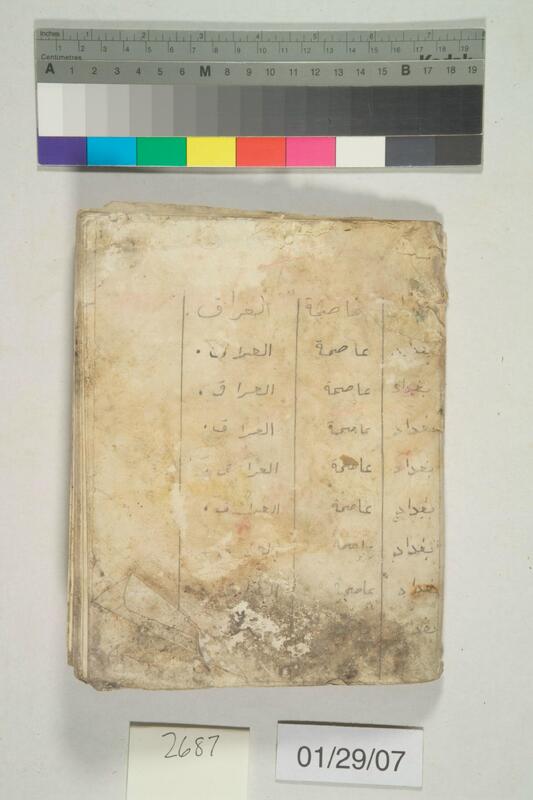 Inches 1 2 3 4 5 6 7 8
Centimetres 1 2 3 4 5 6 7 8 9 10 11 12 13 14 15 16 17 18 19
A 1 2 3 4 5 6 M 8 9 10 11 12 13 14 15 B 17 18 19
عاصمة العراق.
بغداد عاصمة العراق.
بغداد عاصمة العراق.
بغداد عاصمة العراق.
بغداد عاصمة العراق.
بغداد عاصمة العراق.
بغداد عاصمة
بغداد عاصمة
2687
01/29/07